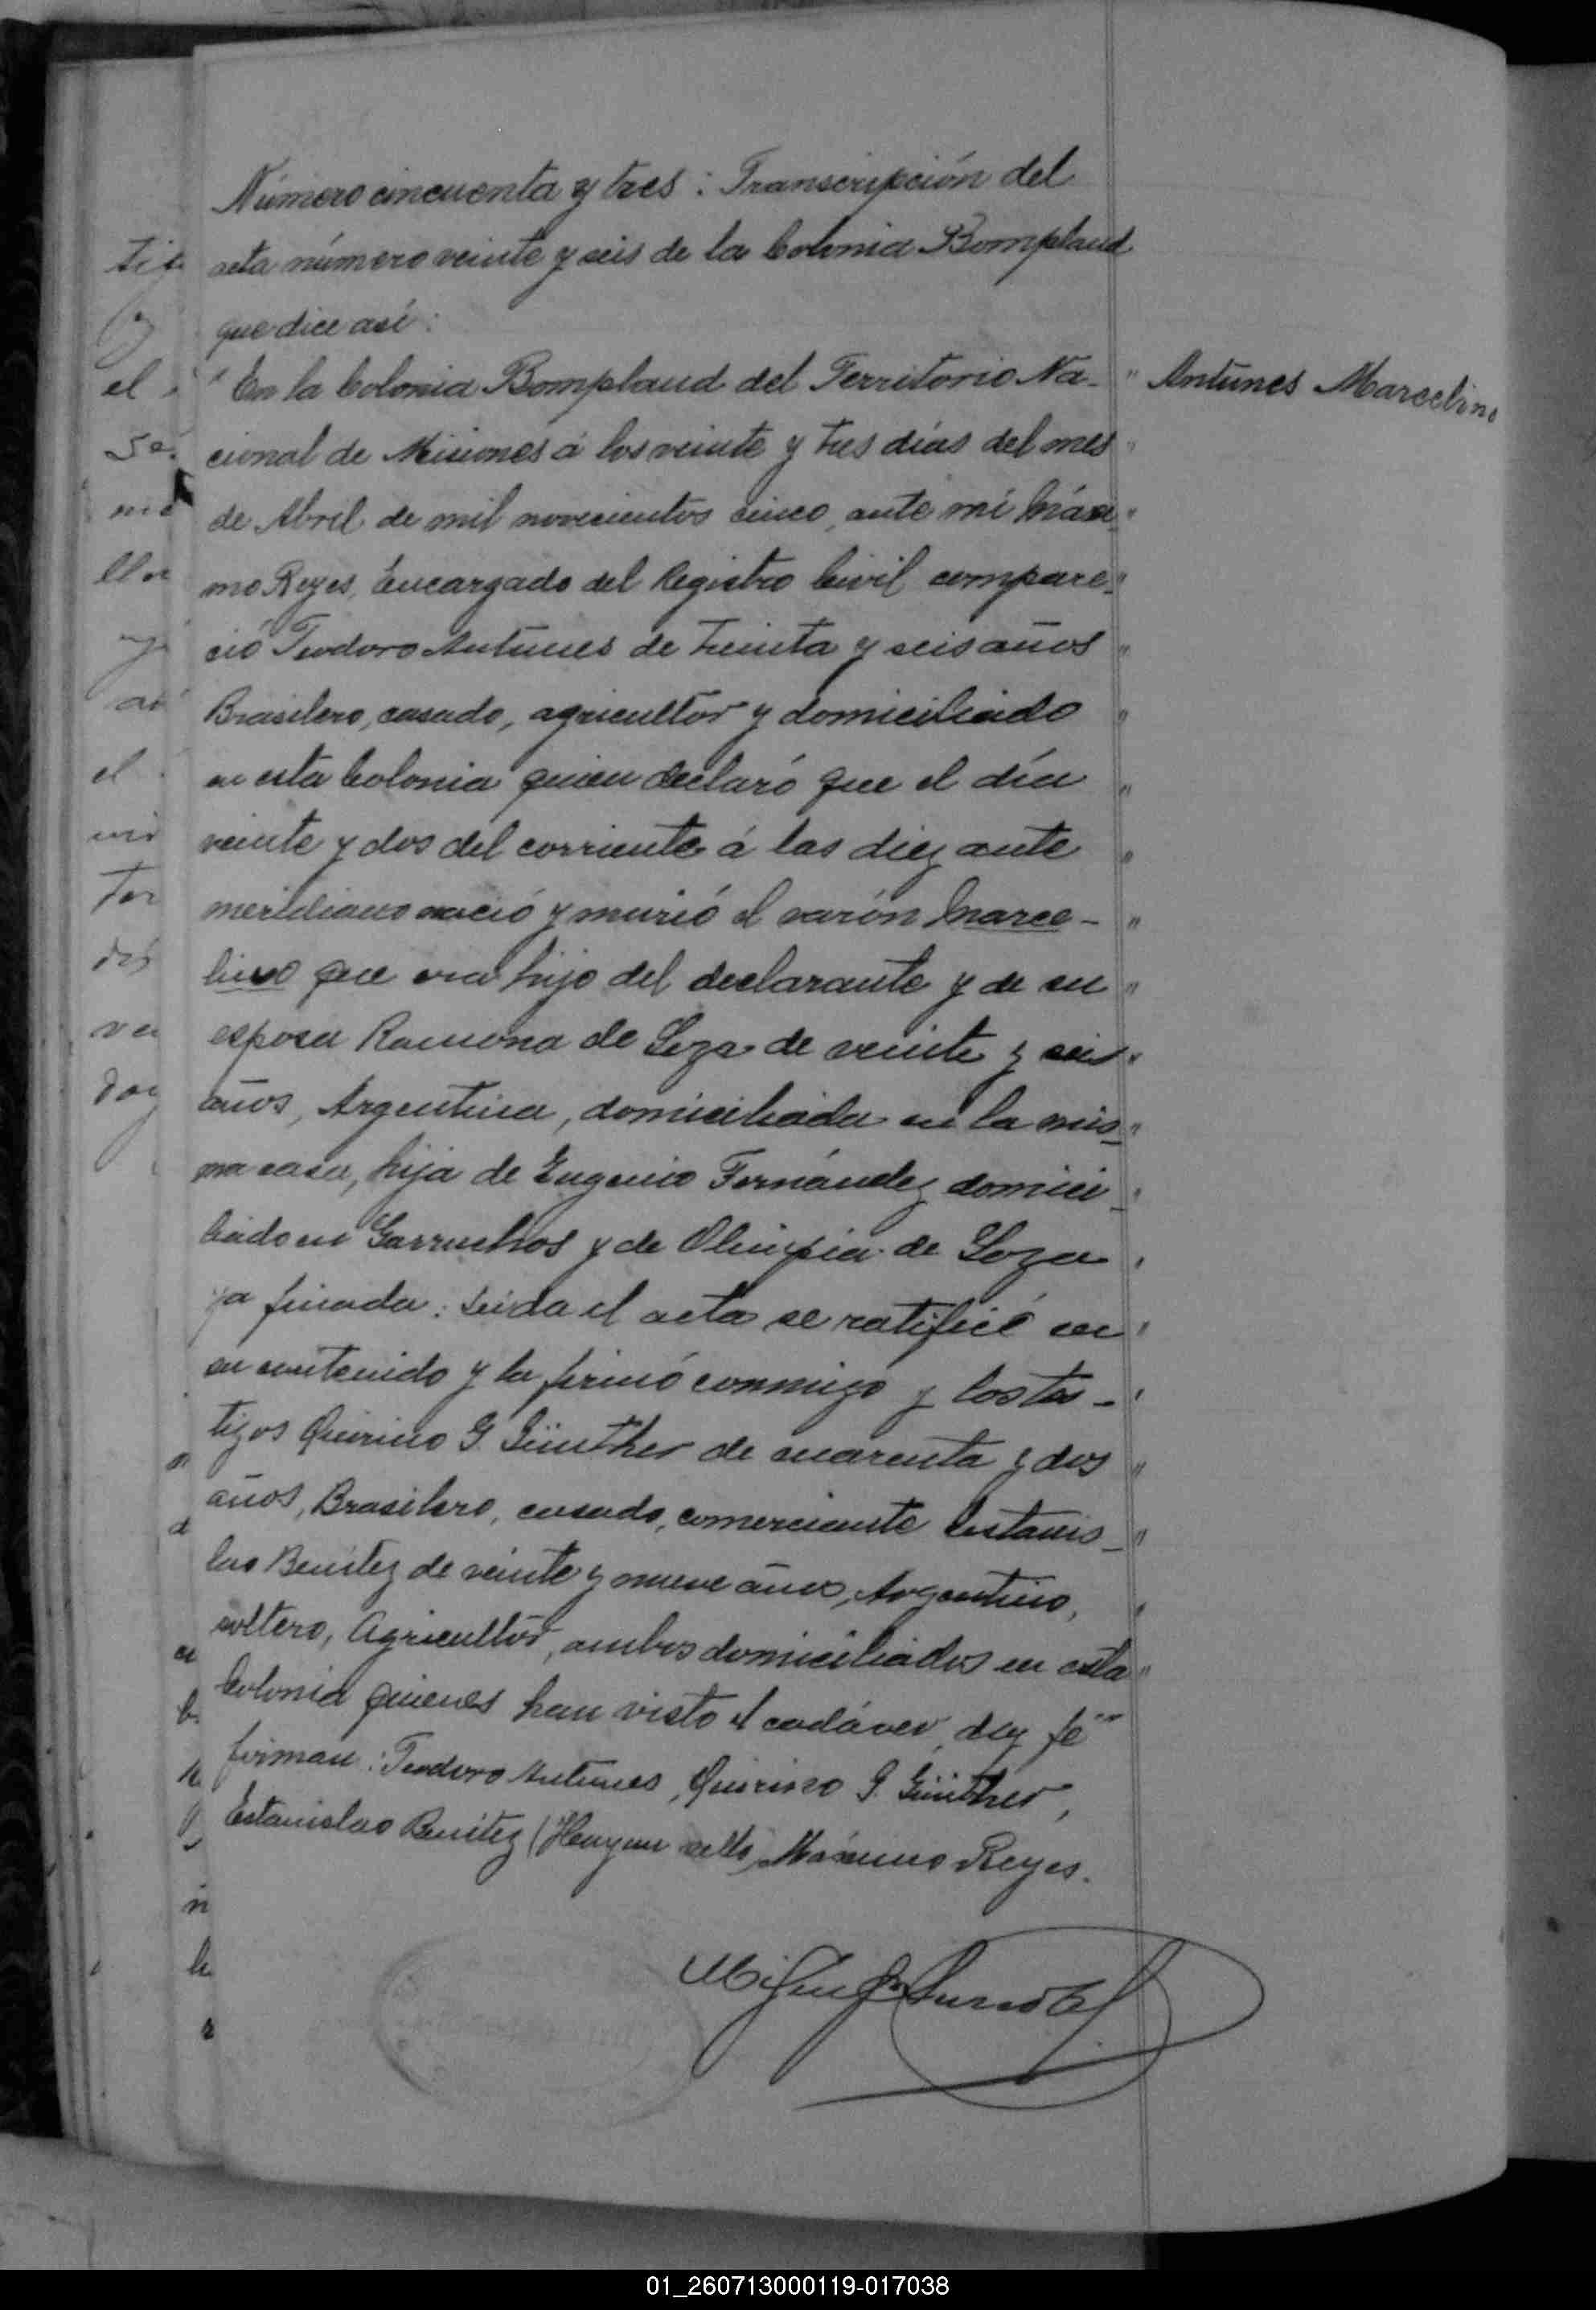 Número cincuenta y tres : Transcripción del
acta número veinte y seis de la Colonia Bompland
que dice así :
" En la Colonia Bompland del Territorio Na- "
Antunes Marcelino
cional de Misiones á los veinte y tres días del mes "
de Abril de mil novecientos cinco, ante mí Máxi- "
mo Reyes, Encargado del Registro Civil compare- "
ció Teodoro Antunes de treinta y seis años "
Brasilero, casado, agricultor y domiciliado "
en esta Colonia quien declaró que el día "
veinte y dos del corriente á las diez ante "
meridiano nació y murió el varón Marce- "
lino que era hijo del declarante y de su "
esposa Ramona de Loza de veinte y seis "
años, Argentina, domiciliada en la mis- "
ma casa, hija de Eugenio Fernández domici- "
liado en Garruchos y de Olimpia de Loza "
ya finada : Leida el acta se ratificó en "
su contenido y la firmó conmigo y los tes- "
tigos Quirino G. Günther de cuarenta y dos "
años, Brasilero, casado, comerciante Estanis- "
lao Benitez de veinte y nueve años, Argentino, "
soltero, Agricultor, ambos domiciliados en esta "
Colonia quienes han visto el cadáver, doy fé "
firman : Teodoro Antunes, Quirino G. Günther,
Estanislao Benitez (Hay un sello) Máximo Reyes.
01_260713000119-017038